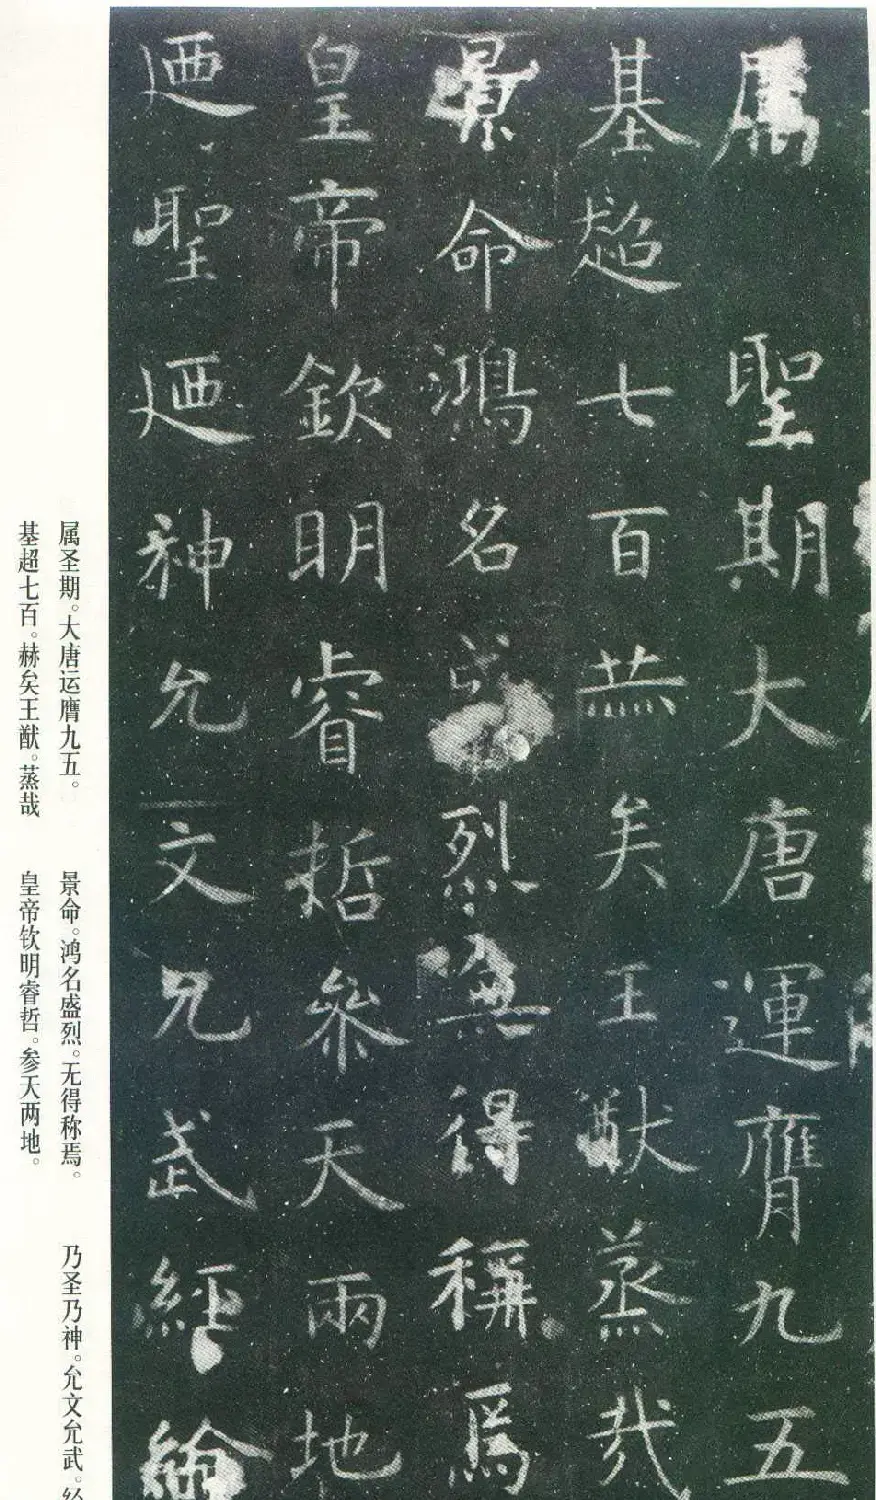 屬聖期大唐運膺九五
基超七百赫矣王猷蒸哉
景命鴻名盛烈無得稱焉
皇帝欽明睿哲參天兩地
迺聖迺神允文允武經綸
属圣期。大唐运膺九五。
基超七百。赫矣王猷。蒸哉
景命。鸿名盛烈。无得称焉。
皇帝钦明睿哲。参天两地。
乃圣乃神。允文允武。